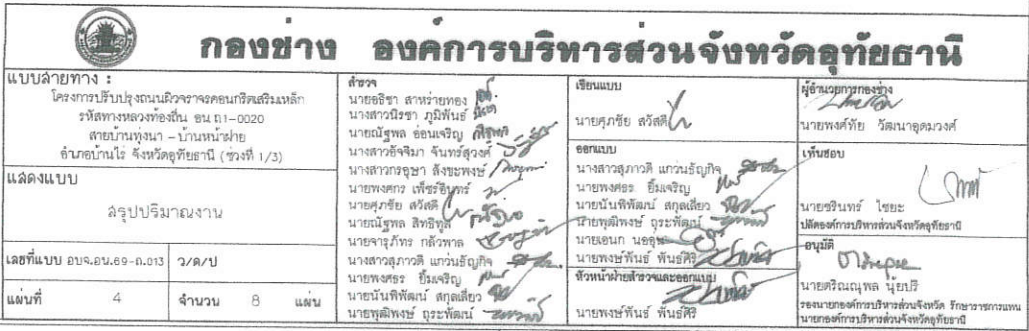 กองช่าง องค์การบริหารส่วนจังหวัดอุทัยธานี
แบบสายทาง :
โครงการปรับปรุงถนนผิวจราจรคอนกรีตเสริมเหล็ก
รหัสทางหลวงท้องถิ่น อน ถ1-0020
สายบ้านทุ่งนา - บ้านหน้าฝาย
อำเภอบ้านไร่ จังหวัดอุทัยธานี (ช่วงที่ 1/3)
แสดงแบบ
สรุปปริมาณงาน
เลขที่แบบ อบจ.อน.69-ถ.013 ว/ด/ป
แผ่นที่ 4 จำนวน 8 แผ่น
สำรวจ
นายอธิชา สาหร่ายทอง
นางสาวนิรชา ภูมิพันธ์
นายณัฐพล อ่อนเจริญ
นางสาวอัจจิมา จันทร์สุวงศ์
นางสาวกรอุษา สังขะพงษ์
นายพงศกร เพ็ชรอินทร์
นายศุภชัย สวัสดี
นายณัฐพล สิทธิทูล
นายจารุภัทร กลัวพาล
นางสาวสุภาวดี แกว่นธัญกิจ
นายพงศธร ยิ้มเจริญ
นายนันพิพัฒน์ สกุลเสี่ยว
นายพุฒิพงษ์ ถุระพัฒน์
เขียนแบบ
นายศุภชัย สวัสดี
ออกแบบ
นางสาวสุภาวดี แกว่นธัญกิจ
นายพงศธร ยิ้มเจริญ
นายนันพิพัฒน์ สกุลเสี่ยว
นายพุฒิพงษ์ ถุระพัฒน์
นายเอนก นออุ่น
นายพงษ์พันธ์ พันธ์ศิริ
หัวหน้าฝ่ายสำรวจและออกแบบ
นายพงษ์พันธ์ พันธ์ศิริ
ผู้อำนวยการกองช่าง
นายพงศ์ทัย วัฒนาอุดมวงศ์
เห็นชอบ
นายชรินทร์ ไชยะ
ปลัดองค์การบริหารส่วนจังหวัดอุทัยธานี
อนุมัติ
นายตริณณุพล นุ้ยปรี
รองนายกองค์การบริหารส่วนจังหวัด รักษาราชการแทน
นายกองค์การบริหารส่วนจังหวัดอุทัยธานี